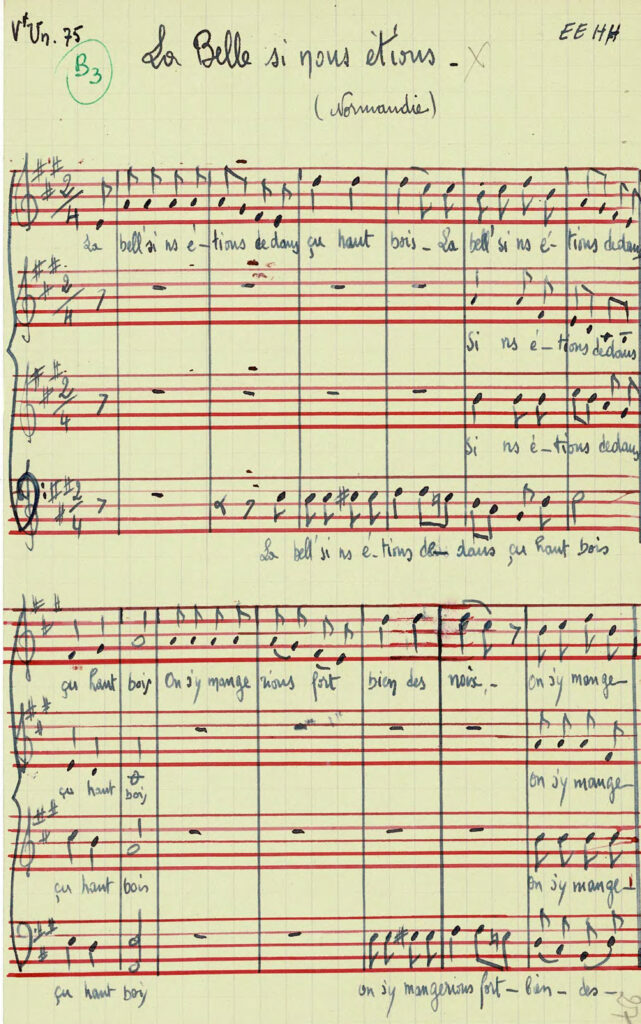 Vt Un. 75
EE HH
B3
La Belle si nous étions - X
(Normandie)
2/4
La bell' si ns é-tions dedans çu haut bois - La bell' si ns é- tions dedans
2/4
Si ns é-tions dedans
2/4
Si ns é-tions dedans
2/4
La bell' si ns é-tions de dans çu haut bois
çu haut bois On s'y mange rions fort bien des noix,- on s'y mange-
çu haut bois On s'y mange-
çu haut bois On s'y mange-
çu haut bois on s'y mangerions fort - bien - des -